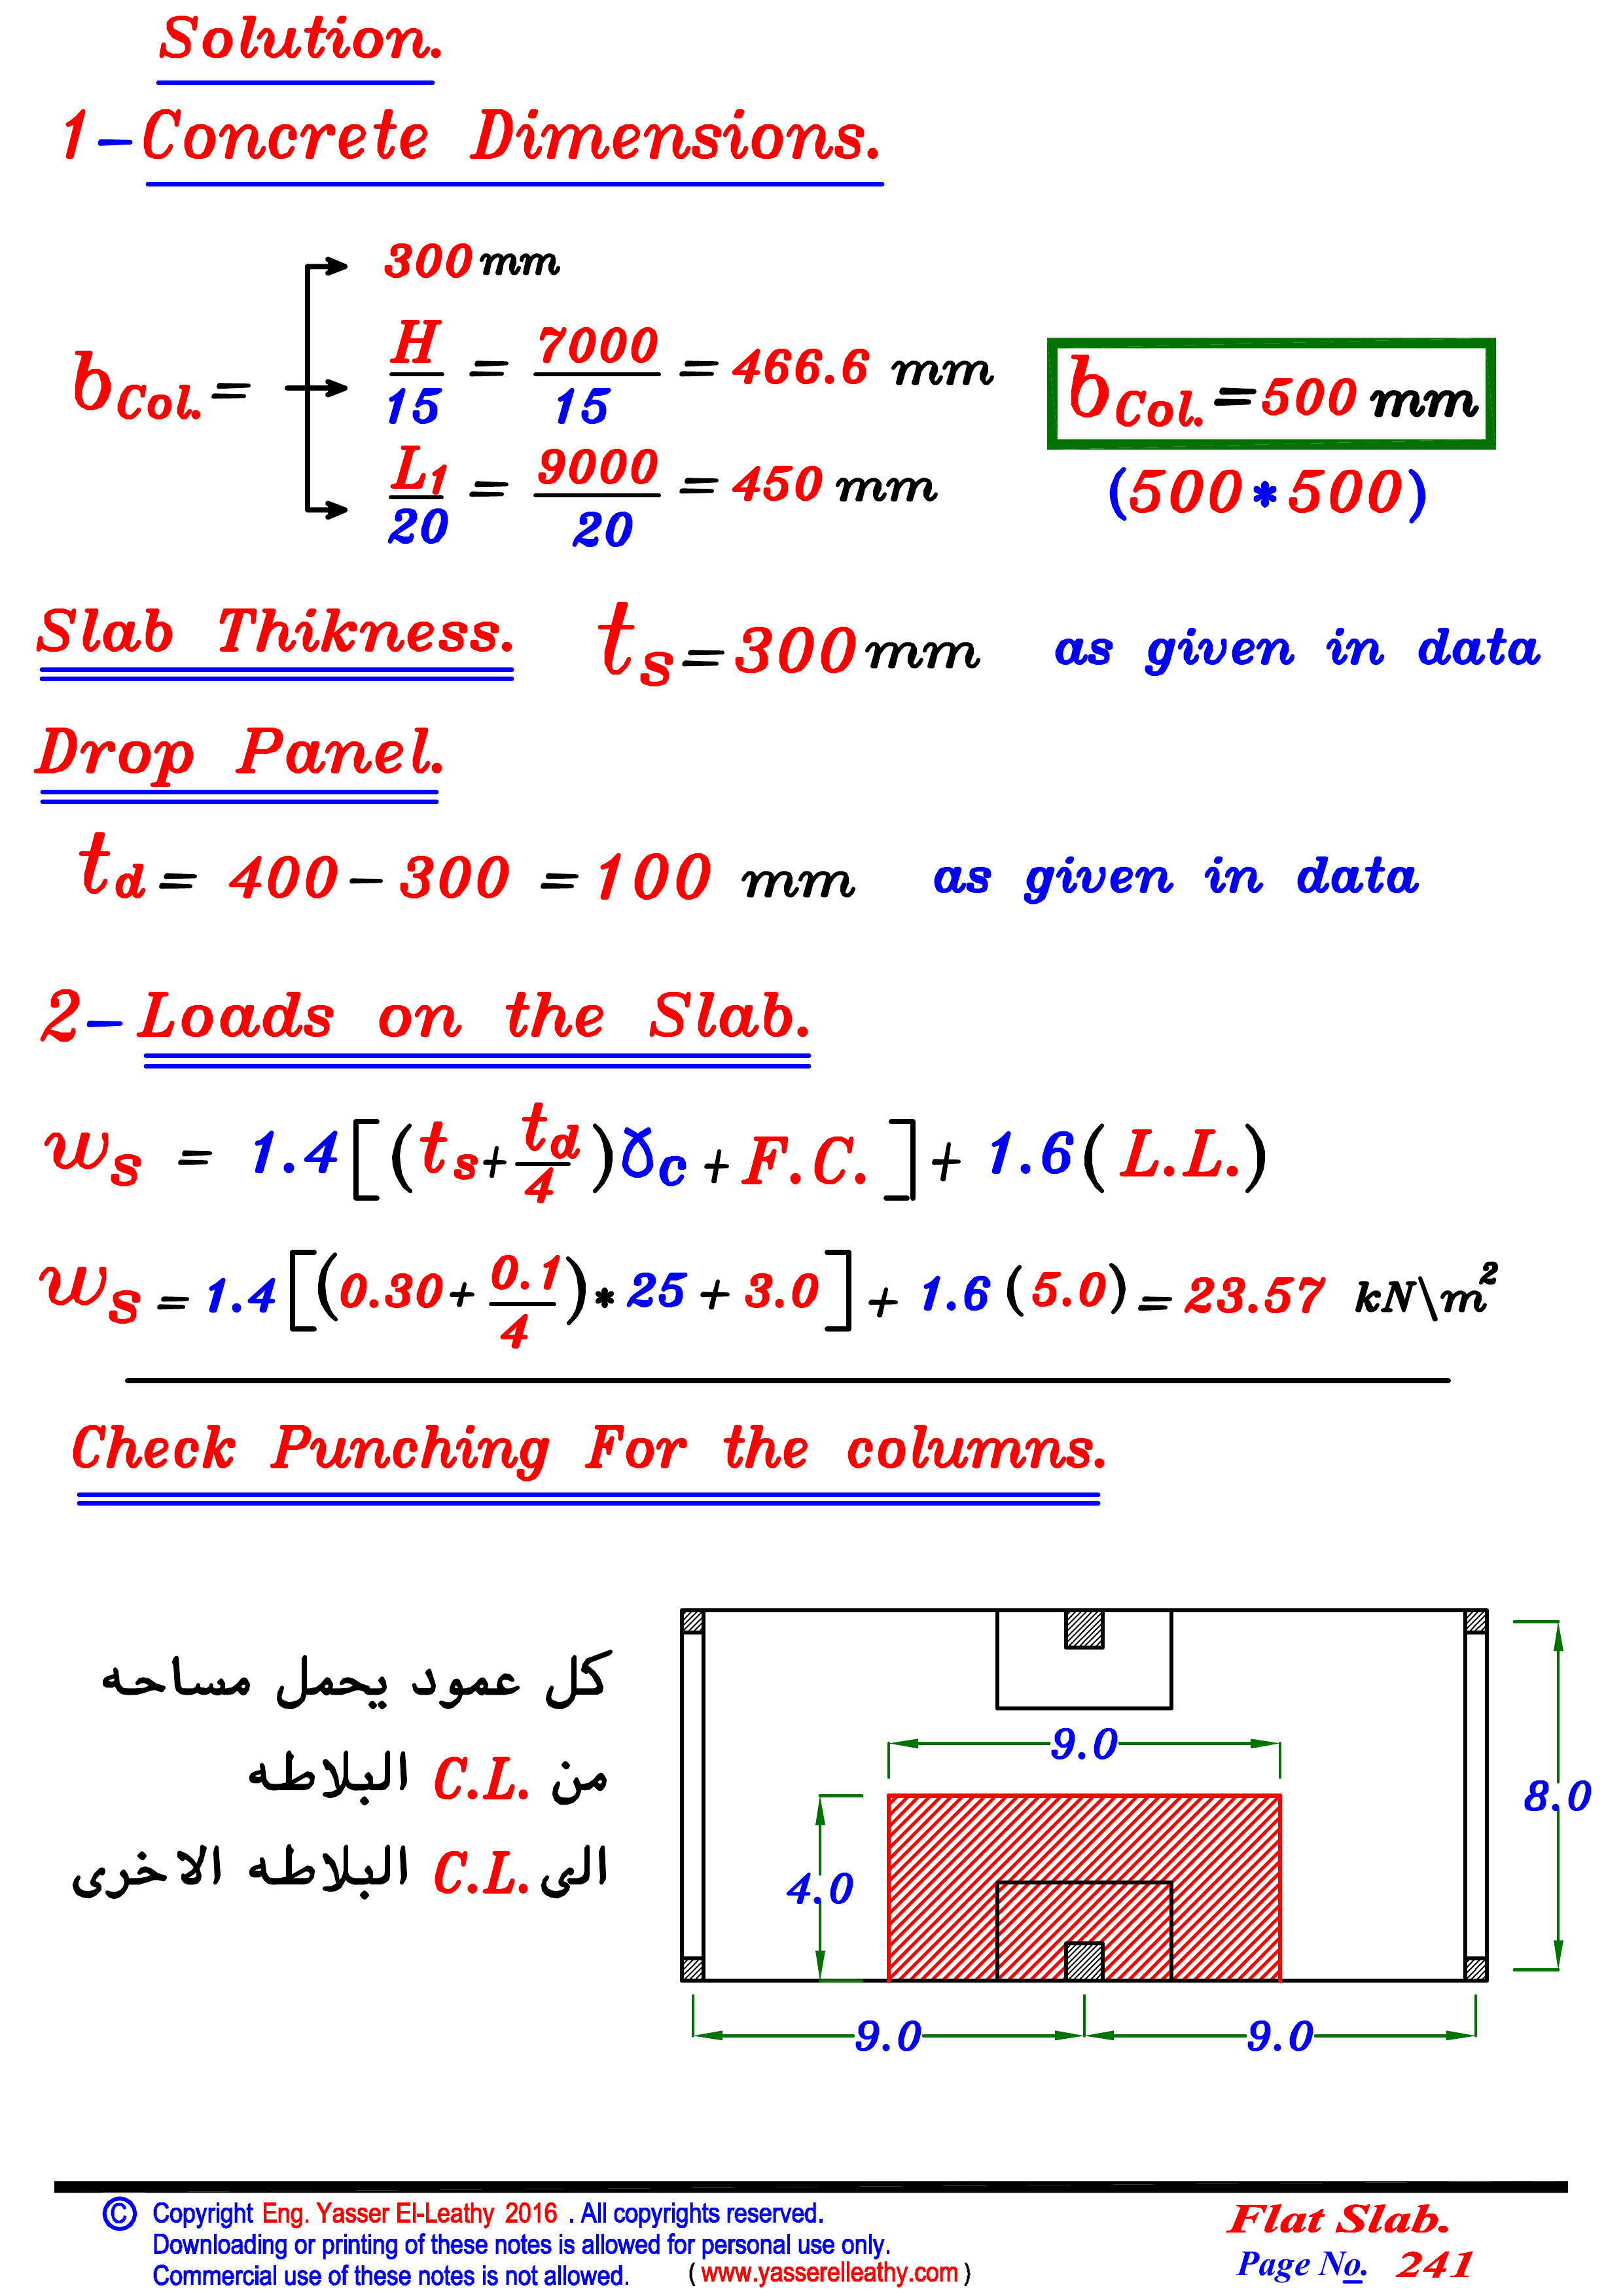 Solution.
1-Concrete Dimensions.
300 mm
b Col. =
H/15 = 7000/15 = 466.6 mm
L1/20 = 9000/20 = 450 mm
b Col. = 500 mm
(500 * 500)
Slab Thikness. ts = 300 mm as given in data
Drop Panel.
td = 400 - 300 = 100 mm as given in data
2- Loads on the Slab.
ws = 1.4 [ ( ts + td/4 ) ɣc + F.C. ] + 1.6 ( L.L. )
ws = 1.4 [ ( 0.30 + 0.1/4 ) * 25 + 3.0 ] + 1.6 ( 5.0 ) = 23.57 kN\m²
Check Punching For the columns.
كل عمود يحمل مساحه
من C.L. البلاطه
الى C.L. البلاطه الاخرى
9.0
4.0
8.0
9.0 9.0
© Copyright Eng. Yasser El-Leathy 2016 . All copyrights reserved.
Downloading or printing of these notes is allowed for personal use only.
Commercial use of these notes is not allowed. ( www.yasserelleathy.com )
Flat Slab.
Page No. 241